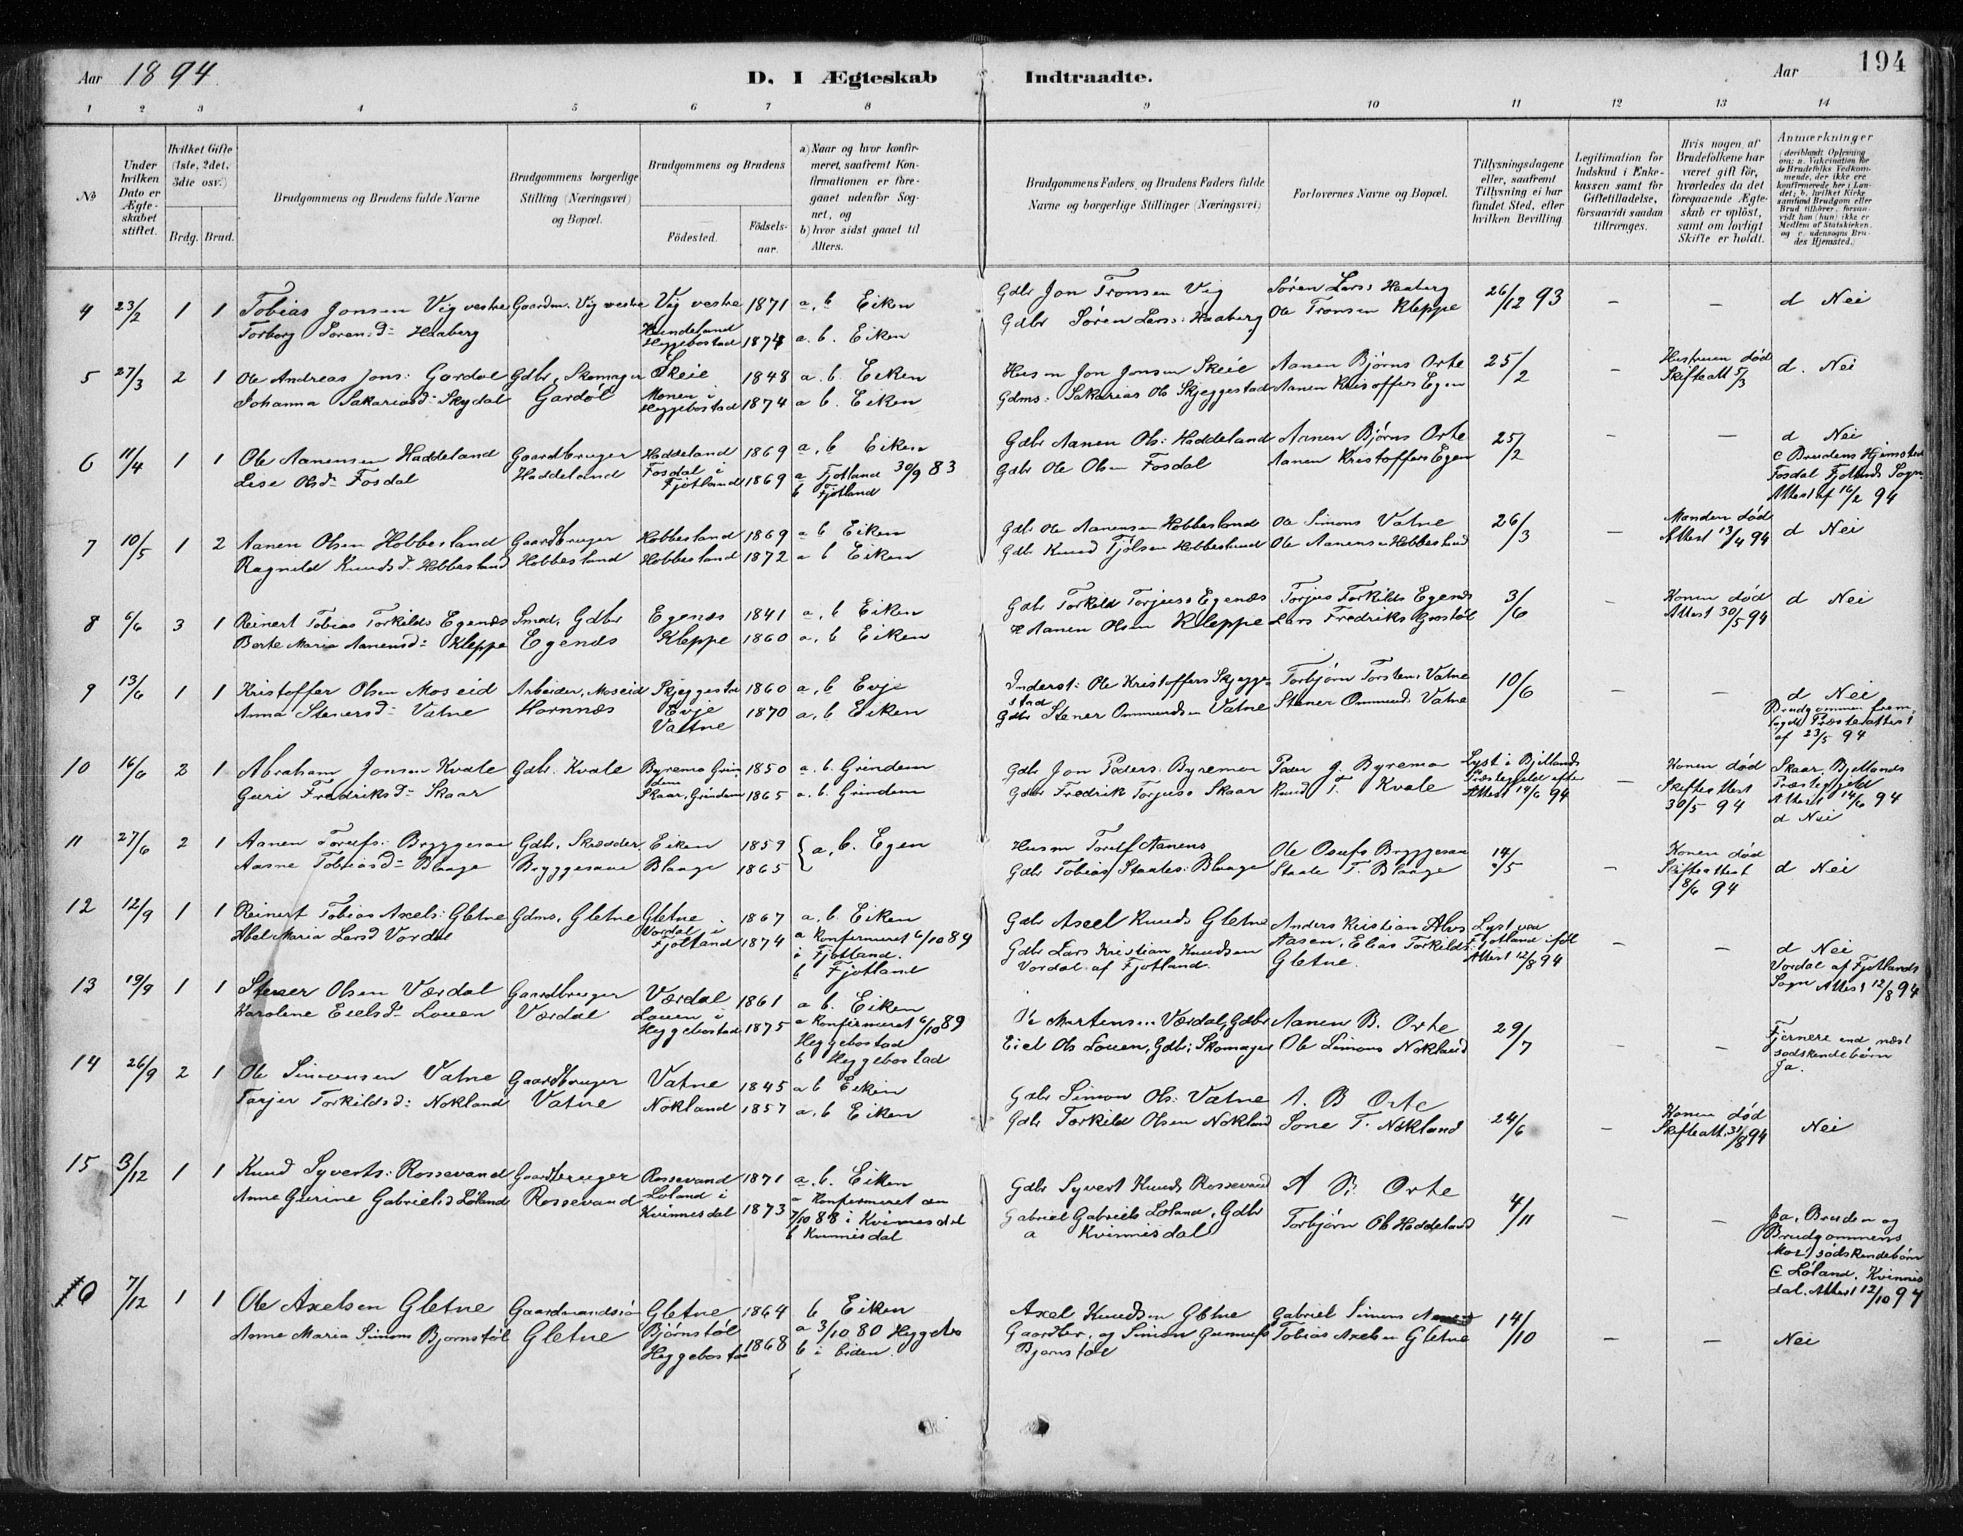 Aar 1894. D. I Ægteskab Indtraadte. Aar 194
1 2 3 4 5 6 7 8 9 10 11 12 13 14
No
Under hvilken Dato er Ægteskabet stiftet.
Hvilket Gifte (1ste, 2det, 3die osv.)
Brdg. Brud.
Brudgommens og Brudens fulde Navne
Brudgommens borgerlige Stilling (Næringsvei) og Bopæl.
Brudgommens og Brudens
Fødested. Fødselsaar.
a) Naar og hvor konfirmeret, saafremt Konfirmationen er foregaaet udenfor Sognet, og
b) hvor sidst gaaet til Alters.
Brudgommens Faders, og Brudens Faders fulde Navne og borgerlige Stillinger (Næringsvei)
Forlovernes Navne og Bopæl.
Tillysningsdagene eller, saafremt Tillysning ei har fundet Sted, efter hvilken Bevilling.
Legitimation for Indskud i Enkekassen samt for Giftetilladelse, forsaavidt saadan tiltrænges.
Hvis nogen af Brudefolkene har været gift før, hvorledes da det foregaaende Ægteskab er opløst, samt om lovligt Skifte er holdt.
Anmærkninger (deriblandt Oplysning om: a. Vakcination for de Brudefolks Vedkommende, der ikke ere konfirmerede her i Landet; b. hvilket Kirkesamfund Brudgom eller Brud tilhører, forsaavidt han (hun) ikke er Medlem af Statskirken, og c. udensogns Brudes Hjemsted.)
4 23/2 1 1 Tobias Jonsen Vig vestre Gaardm. Vig vestre Vig vestre 1871 a, b Eiken Gdbr Jon Tronsen Vig Søren Lars: Haaberg 26/12 93 — — d Nei
Torborg Sørensd: Haaberg Hundeland Heggebostad 1874 a. b. Eiken Gdbr Søren Lars: Haaberg Ole Tronsen Kleppe
5 27/3 2 1 Ole Andreas Jons: Gardøl Gdbr, Skomager Skeie 1848 a. b. Eiken Husm Jon Jonsen Skeie Aanen Bjørns Orte 25/2 — Hustruen død Skifteatt 5/3 d. Nei
Johanna Sakariasd: Skydal Gardøl Monen i Heggebostad 1874 a b. Eiken Gdms: Sakarias Ols Skjeggestad Aanen Kristoffers Egen
6 11/4 1 1 Ole Aanensen Haddeland Gaardbruger Haddeland 1869 a, b Eiken Gdbr Aanen Ols: Haddeland Aanen Bjørns Orte 25/2 — — d Nei
Lise Olsd: Fosdal Haddeland Fosdal i Fjotland 1869 a Fjotland 30/9 83 Gdbr Ole Olsen Fosdal Aanen Kristoffers Egen c Brudens Hjemsted
b Fjotland Fosdal Fjotlands Sogn.
Attest af 16/2 94
7 10/5 1 2 Aanen Olsen Hobbesland Gaardbruger Hobbesland 1869 a b Eiken Gdbr Ole Aanensen Hobbesland Ole Simons Vatne 26/3 — Manden død Attest 13/4 94 d Nei
Ragnild Knudsd: Hobbesland Hobbesland Hobbesland 1872 a b Eiken Gdbr Knud Tjølsen Hobbesland Ole Aanensen Hobbesland
8 6/6 3 1 Reinert Tobias Torkilds Egenæs Smed, Gdbr Egenæs 1841 a, b Eiken Gdbr Torkild Torjus: Egenæs Torjus Torkilds Egenæs 3/6 — Konen død Attest 30/5 94 d Nei
Berte Maria Aanensd: Kleppe Egenæs Kleppe 1860 a, b Eiken Aanen Olsen Kleppe Lars Fredriks
9 13/6 1 1 Kristoffer Olsen Moseid Arbeider, Moseid Skjeggestad 1860 a, b Evje Inderst: Ole Kristoffers Skjeggestad Torbjørn Torstens Vatne 10/6 — — d Nei
Anna Stenersd: Vatne Hornnæs Evje Vatne 1870 a, b Eiken Gdbr Stener Ommundsen Vatne Stener Ommund: Vatne Brudgommen fremlagde Præsteattest af 23/5 94
10 16/6 2 1 Abraham Jonsen Kvale Gdbr. Kvale Byremo Grindem 1850 a. b. Grindem Gdbr Jon Peders. Byremo Peder J. Byremo Lyst i Bjellands Præstegjeld efter Attest 14/6 94 — Konen død Skifteattest 30/5 94 Skaar, Bjellands Præstegjeld Attest 14/6 94 d Nei
Guri Fredriksd: Skaar Skaar, Grindem 1865 a. b. Grindem Gdbr Fredrik Torjus: Skaar Knud T. Kvale
11 27/6 2 1 Aanen Torufs: Bryggesaa Gdbr, Skrædder, Eiken 1859 a, b. Egen Husm Torulf Aanens Ole Osufs Bryggesaa 14/5 — Konen død Skifteattest 8/6 94 d Nei
Aasne Tobiasd: Blaage Bryggesaae Blaage 1865 Gdbr Tobias Staales: Blaage Staale T. Blaage
12 12/9 1 1 Reinert Tobias Axels: Gletne Gdms, Gletne Gletne 1867 a, b. Eiken Gdbr Axel Knuds Gletne Anders Kristian Alvs Lyst ved — — d Nei
Abel Maria Larsd Vordal Vordal i Fjotland 1874 a Konfirmeret 6/10 89 i Fjotland. Gdbr Lars Kristian Knudsen Aasen, Elias Torkilds: Fjotland iføl Attest 12/8 94 Vordal af Fjotlands
b Fjotland Vordal af Fjotland. Gletne. Sogn Attest 12/8 94
13 19/9 1 1 Stener Olsen Værdal Gaardbruger Værdal 1861 a b. Eiken Ole Martens... Værdal, Gdbr Aanen B. Orte 29/7 — — Fjernere end næst sødskendebørn Ja.
Karoline Eielsd. Louen Værdal Louen i Heggebostad 1875 a Konfirmeret 6/10 89 Heggebostad Eiel Ols Louen, Gdbr, Skomager Ole Simons Nokland
b Heggebostad
14 26/9 2 1 Ole Simonsen Vatne Gaardbruger Vatne 1845 a b Eiken Gdbr Simon Ols: Vatne A. B Orte 24/6 — Konen død Skifteatt. 31/8 94 Nei
Tarjer Torkildsd: Nokland Vatne Nokland 1857 a, b Eiken Gdbr Torkild Olsen Nokland Sone T. Nokland
15 3/12 1 1 Knud Syverts: Rossevand Gaardbruger Rossevand 1871 a, b. Eiken Gdbr Syvert Knuds Rossevand A B. Orte 4/11 — — Ja, Bruden og
Anne Gurine Gabrielsd Løland Rossevand Løland i Kvinnesdal 1873 a Konfirmeret den 7/10 88 i Kvinnesdal Gabriel Gabriels Løland, Gdbr Torbjørn Ols Haddeland Brudgommens Mor sødskendebørn
b Kvinnesdal a Kvinnisdal c Løland. Kvinnisdal. Attest 12/10 94
16 7/12 1 1 Ole Axelsen Gletne Gaardmandssøn Gletne 1864 b Eiken Axel Knudsen Gletne Gabriel Simons 14/10 — — Nei
Anne Maria Simons Bjørnstøl Gletne Bjørnstøl Heggebostad 1868 a 3/10 80 Heggeb Gaardbr, og Simon Gunnufs Tobias Axelsen Gletne
b i biden. Bjørnstøl